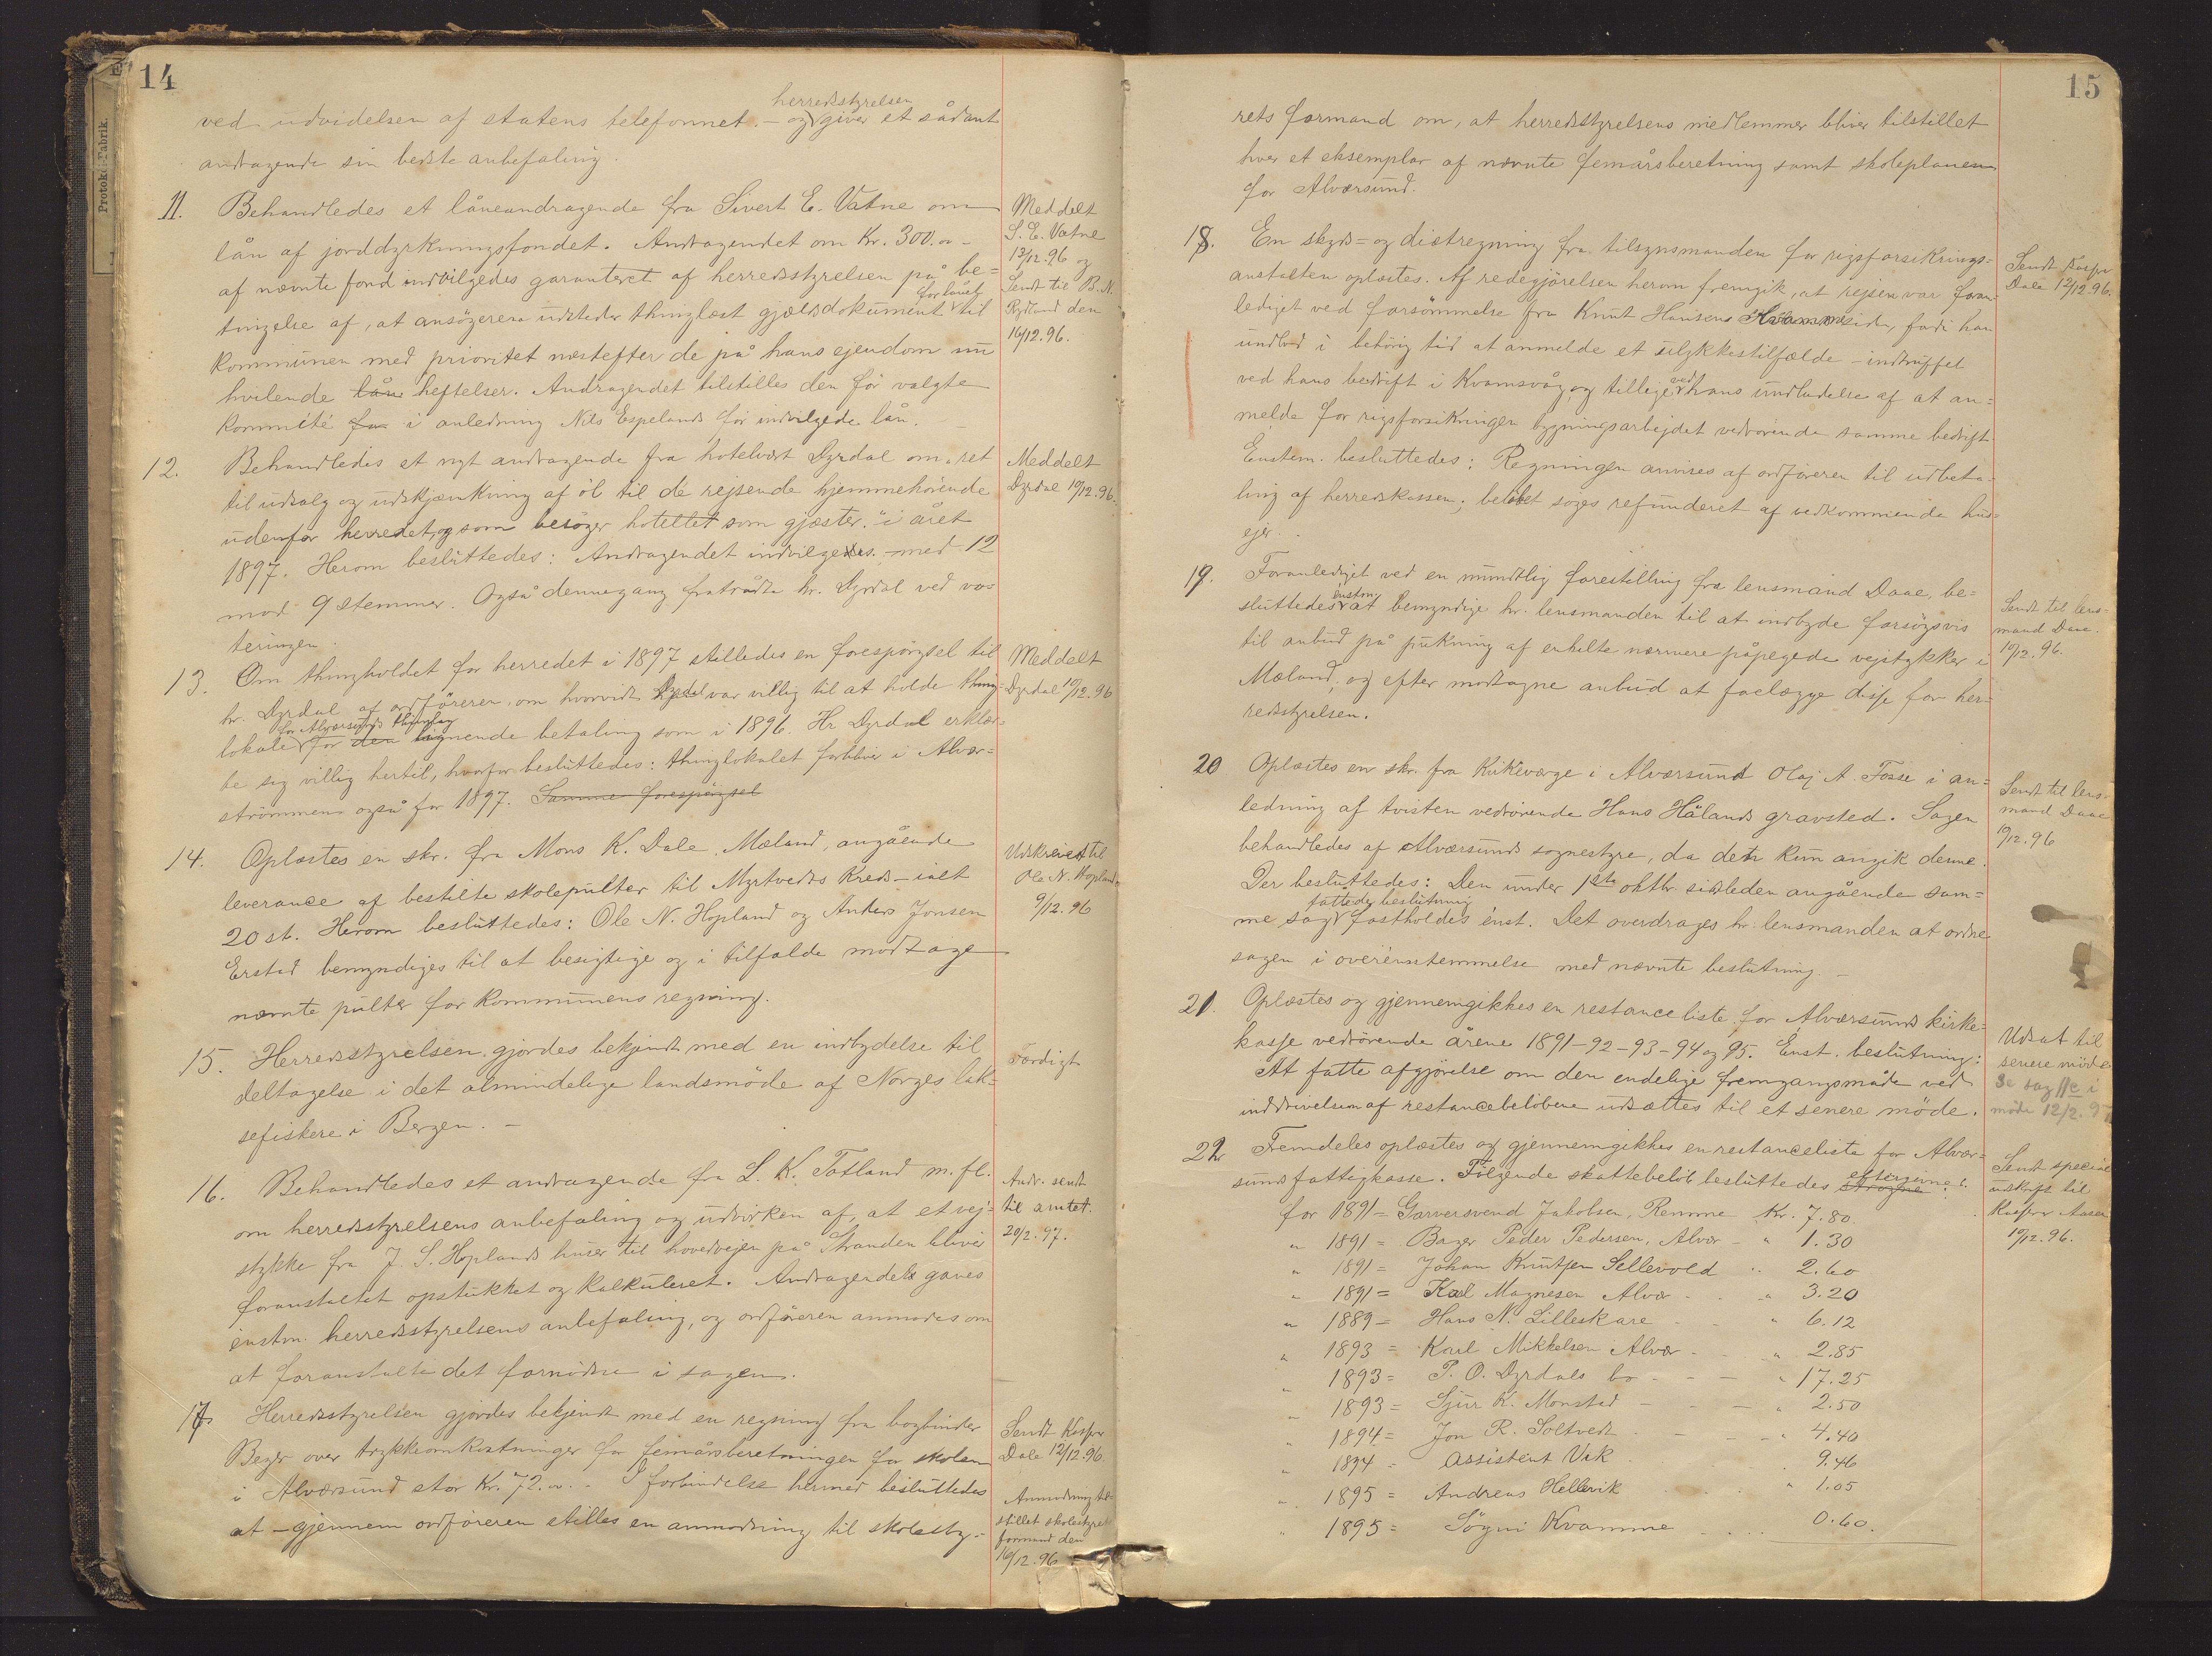 14
ved udvidelsen af statens telefonnet. – og herredsstyrelsen giver et sådant
andragende sin bedste anbefaling.
11. Behandledes et låneandragende fra Sivert E. Vatne om
lån af jorddyrkningsfondet. Andragendet om Kr. 300.00 –
af nævnte fond indvilgedes garanteret af herredsstyrelsen på be=
tingelse af, at ansøgeren udsteder thinglæst gjældsdokument for lånet til
kommunen med prioritet næstefter de på hans ejendom nu
hvilende lån heftelser. Andragendet tilstilles den før valgte
kommité fra i anledning Nils Espelands før indvilgede lån.
Meddelt
S. E. Vatne
13/12.96 og
Sendt til B. N.
Rydland den
16/12.96.
12. Behandledes et nyt andragende fra hotelvært Dyrdal om „ret
til udsalg og udskjænkning af öl til de rejsende hjemmehörende
udenfor herredet, og som besöger hotellet som gjæster." i året
1897. Herom besluttedes: Andragendet indvilgedes. – med 12
mod 9 stemmer. Også dennegang fratrådte hr. Dyrdal ved vo=
teringen.
Meddelt
Dyrdal 10/12.96.
13. Om thingholdet for herredet i 1897 stilledes en forespörgsel til
hr. Dyrdal af ordföreren, om hvorvidt Dyrdal var villig til at holde thing=
lokale for Alversunds thinglag for den lignende betaling som i 1896. Hr Dyrdal erklær=
te sig villig hertil, hvorfor besluttedes: Thinglokalet forbliver i Alver=
strömmen også for 1897. Samme forespörgsel
Meddelt
Dyrdal 10/12.96
14. Oplæstes en skr. fra Mons K. Dale, Mæland, angående
leverance af bestilte skolepulter til Myrtvedts Kreds – ialt
20 st. Herom besluttedes: Ole N. Hopland og Anders Jonsen
Erstad bemyndiges til at besigtige og i tilfælde modtage
nævnte pulter for kommunens regning.
Udskrevet til
Ole N. Hopland
9/12.96
15. Herredsstyrelsen gjordes bekjendt med en indbydelse til
deltagelse i det almindelige landsmöde af Norges lak=
sefiskere i Bergen. –
Færdigt
16. Behandledes et andragende fra L. K. Totland m. fl.
om herredsstyrelsens anbefaling og udvirken af, at et vej=
stykke fra J. S. Hoplands huser til hovedvejen på Stranden bliver
foranstaltet opstukket og kalkuleret. Andragendet gaves
enstm. herredsstyrelsens anbefaling, og ordföreren anmodes om
at foranstalte det fornödne i sagen.
Andr. sendt
til amtet.
20/2.97.
17. Herredsstyrelsen gjordes bekjendt med en regning fra bogbinder
Beyer over trykkeomkostninger for femårsberetningen for skolen
i Alversund stor Kr. 72.00. – I forbindelse hermed besluttedes
at – gjennem ordföreren stilles en anmodning til skolesty=
Sendt Kasper
Dale 12/12.96.
Anmodning til=
stillet skolestyrets
formand den
16/12.96
15
rets formand om, at herredsstyrelsens medlemmer bliver tilstillet
hver et eksemplar af nævnte femårsberetning samt skoleplanen
for Alversund.
18. En skyds= og diætregning fra tilsynsmanden for rigsforsikrings=
anstalten oplæstes. Af redegjörelsen herom fremgik, at rejsen var foran=
lediget ved forsömmelse fra Knut Hansens side, fordi han
undlod i behörig tid at anmelde et ulykkestilfælde – indtruffet
ved hans bedrift i Kvamsvåg, og tillige ved hans undladelse af at an=
melde for rigsforsikringen bygningsarbejdet vedrörende samme bedrift.
Enstem. besluttedes: Regningen anvises af ordföreren til udbeta=
ling af herredskassen; belöbet söges refunderet af vedkommende hus=
ejer.
Sendt Kasper
Dale 12/12.96.
19. Foranlediget ved en mundtlig forestilling fra lensmand Daae, be=
sluttedes enstm. at bemyndige hr. lensmanden til at indbyde forsögsvis
til anbud på pukning af enkelte nærmere påpegede vejstykker i
Mæland, og efter modtagne anbud at forelægge disse for her=
redsstyrelsen.
Sendt til lens=
mand Daae.
10/12.96.
20 Oplæstes en skr. fra Kirkeværge i Alversund Olaj A. Fosse i an=
ledning af tvisten vedrörende Hans Hålands gravsted. Sagen
behandledes af Alversunds sognestyre, da den kun angik denne.
Der besluttedes: Den under 1ste oktbr. sidsleden angående sam=
me sag fattede beslutning fastholdes enst. Det overdrages hr. lensmanden at ordne
sagen i overensstemmelse med nævnte beslutning. –
Sendt til lens=
mand Daae
10/12.96
21. Oplæstes og gjennemgikkes en restanceliste for Alversunds kirke=
kasse vedrörende årene 1891–92–93–94 og 95. Enst. beslutning:
At fatte afgjörelse om den endelige fremgangsmåde ved
inddrivelsen af restancebelöbene udsættes til et senere möde.
Udsat til
senere möde
Se sag 11e i
möde 12/2.97
22. Fremdeles oplæstes og gjennemgikkes en restanceliste for Alver=
sunds fattigkasse. Fölgende skattebelöb besluttedes strögne eftergivne:
Sendt special
udskrift til
Kasper Aasen
10/12.96.
for 1891 = Garversvend Jakobsen, Remme Kr. 7.80.
„ 1891 = Bager Peder Pedersen, Alver – „ 1.30
„ 1891 = Johan Knutsen Sellevold „ 2.60
„ 1891 = Karl Magnesen Alver „ 3.20
„ 1889 – Hans N. Lilleskare „ 6.12
„ 1893 = Karl Mikkelsen Alver „ 2.85
„ 1893 = P. O. Dyrdals bo „ 17.25
„ 1893 = Sjur K. Monstad „ 2.50
„ 1894 = Jon R. Soltvedt „ 4.40
„ 1894 = Assistent Vik 9.46
„ 1895 = Andreas Hellevik „ 1.05
„ 1895 = Sögni Kvamme 0.60.
Protokol-Fabrik.